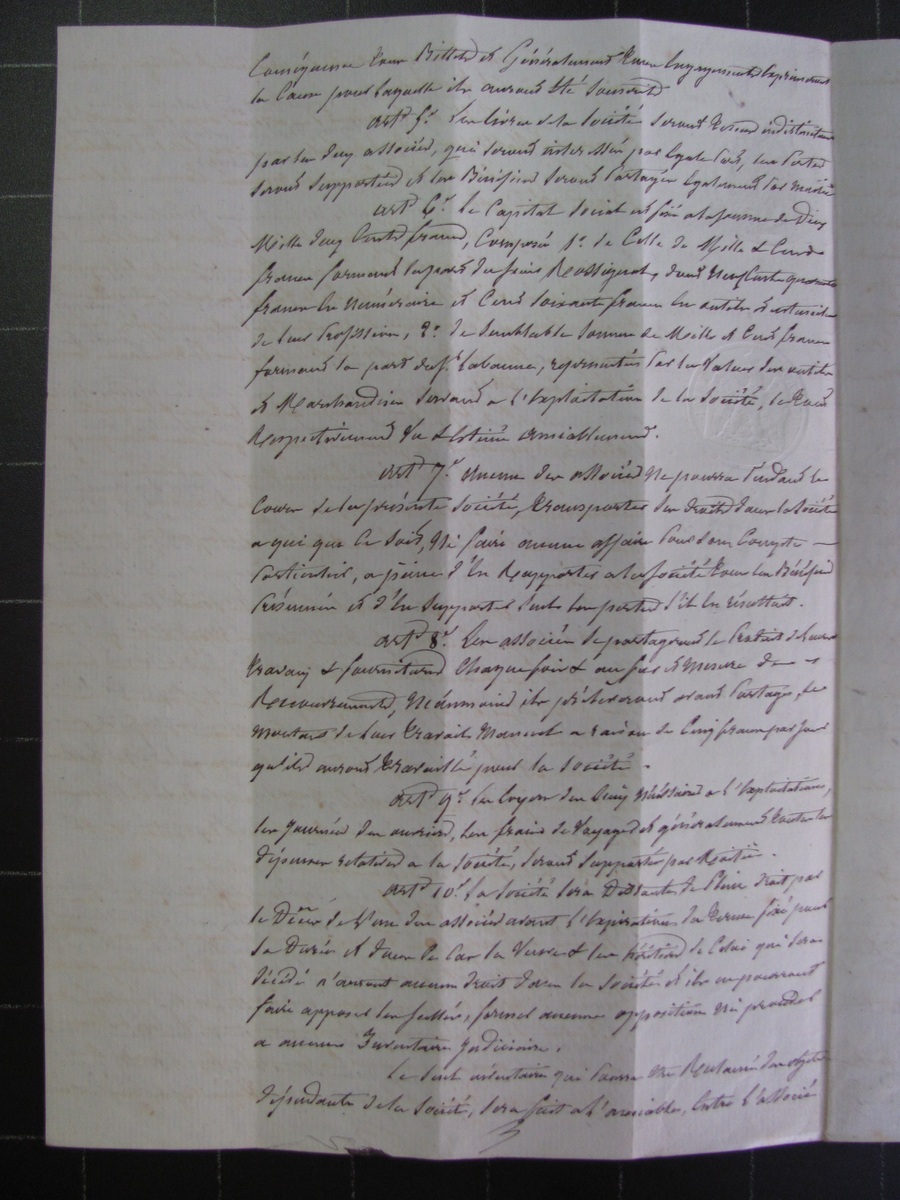 Conséquence tous Billets et Généralement tous Engagements Exprimeront
la Cause pour laquelle ils auront été Souscrits
art. 5.e Les livres de la Société seront tenus indistinctement
par les deux associés, qui seront intéressés par Egale part, les pertes
seront supportées et les Bénéfices seront partagés Egalement par moitié
art. 6.e Le Capital Social est fixé à la somme de Deux
Mille deux Cents francs, Composée 1.o de Celle de Mille & Cent
francs formant la part du sieur Rossignol, dont Neuf Cent quarante
francs en Numéraire et Cent soixante francs en outils et ustensiles
de leur Profession, 2.o de semblable somme de Mille et Cent francs
formant la part de Sr. Labaume, représentée par la Valeur des outils
et Marchandises servant à l'Exploitation de la Société, le tout
Respectivement Vu & Estimé amiablement.
art. 7.e aucun des associés Ne pourra pendant le
Cours de la présente Société, transporter ses droits dans la Société
a qui que Ce soit, Ni faire aucune affaire pour son Compte
particulier, a peine d'En Rapporter a la Société tous les Bénéfices
présumés et d'En supporter seul les pertes s'il En résultait.
art. 8.e Les associés se partageront le produit de leurs
travaux & fournitures Chaque fois & au fur et Mesure de
Recouvrements, Néanmoins ils prélèveront avant partage, le
montant de leur travail Manuel a raison de Cinq francs par jour
qu'ils auront travaillé pour la Société.
art. 9.e Les Loyers des Lieux Nécessaires a l'Exploitation,
les Journées des ouvriers, les frais de Voyages et généralement toutes les
dépenses relatives a la Société, seront supportés par Moitié.
art. 10.e La Société sera Dissoute de Plein droit par
le Décès de l'un des associés avant l'Expiration du terme fixé pour
sa Durée et dans Ce Cas la Veuve & les héritiers de Celui qui sera
décédé n'auront aucun droit dans la Société et ils ne pourront
faire apposer les scellés, former aucune opposition Ni procéder
a aucun Inventaire Judiciaire.
Le seul inventaire qui pourra être Réclamé des objets
dépendants de la Société, sera fait a l'amiable, Entre l'associé